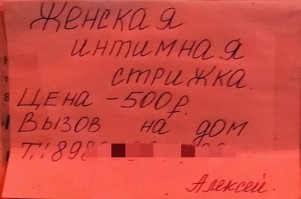 Женская
интимная
стрижка.
Цена – 500р.
Вызов на дом
Т.: 898
Алексей.